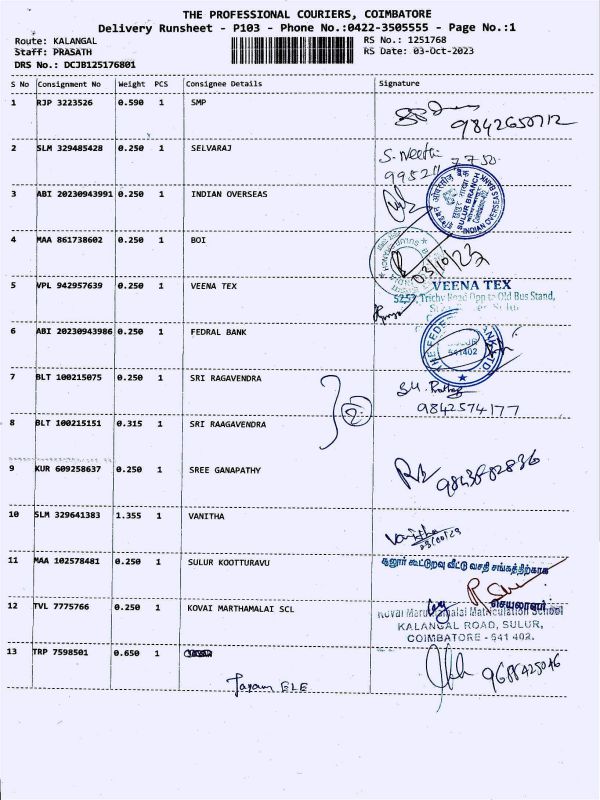 THE PROFESSIONAL COURIERS, COIMBATORE
Delivery Runsheet - P103 - Phone No.:0422-3505555 - Page No.:1
Route: KALANGAL
Staff: PRASATH
DRS No.: DCJB125176801
RS No.: 1251768
RS Date: 03-Oct-2023
S No Consignment No Weight PCS Consignee Details Signature
1 RJP 3223526 0.590 1 SMP
9842650712
2 SLM 329485428 0.250 1 SELVARAJ
S. Neethi
3 ABI 20230943991 0.250 1 INDIAN OVERSEAS
SULUR BRANCH
INDIAN OVERSEAS BANK
4 MAA 861738602 0.250 1 BOI
03/10/23
5 VPL 942957639 0.250 1 VEENA TEX
VEENA TEX
Trichy Road Opp to Old Bus Stand,
6 ABI 20230943986 0.250 1 FEDRAL BANK
641402
7 BLT 100215075 0.250 1 SRI RAGAVENDRA
9842574177
8 BLT 100215151 0.315 1 SRI RAAGAVENDRA
9 KUR 609258637 0.250 1 SREE GANAPATHY
10 SLM 329641383 1.355 1 VANITHA
Vanitha
11 MAA 102578481 0.250 1 SULUR KOOTTURAVU
சூலூர் கூட்டுறவு வீட்டு வசதி சங்கத்திற்காக
செயலாளர்
12 TVL 7775766 0.250 1 KOVAI MARTHAMALAI SCL
Matriculation School
KALANGAL ROAD, SULUR,
COIMBATORE - 641 402.
13 TRP 7598501 0.650 1
9688425046
ELE